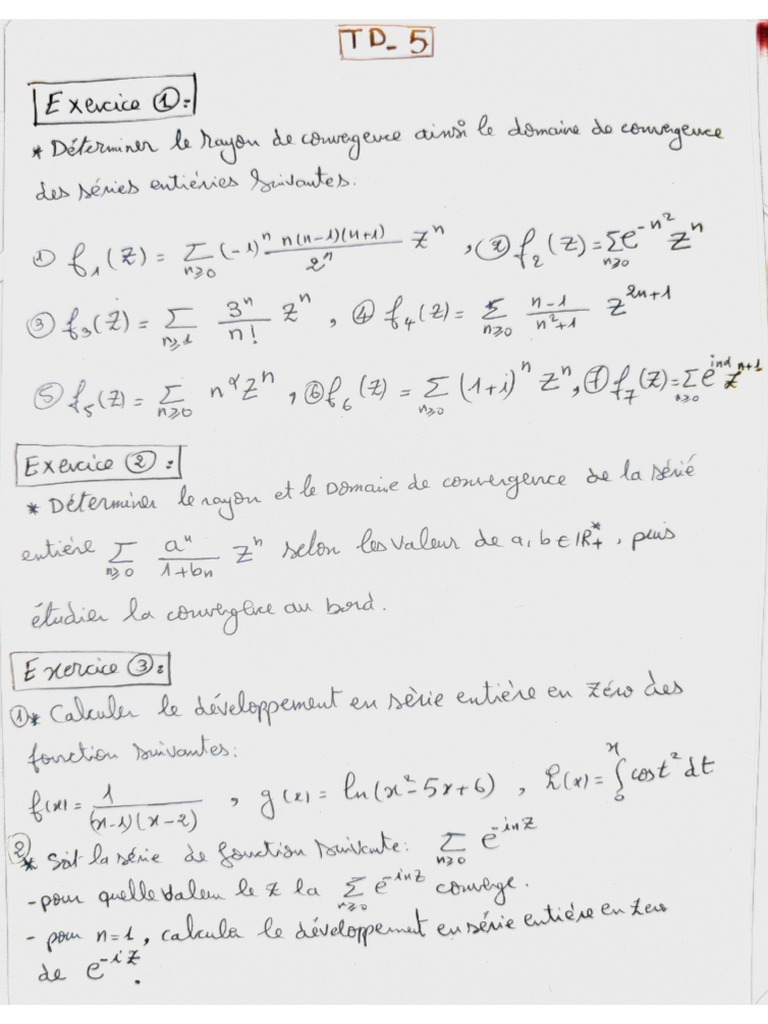 TD_5
Exercice ①:
* Déterminer le rayon de convergence ainsi le domaine de convergence
des séries entiéries suivantes:
① f₁(z) = ∑_{n≥0} (-1)ⁿ n(n-1)(n+1)/2ⁿ zⁿ , ② f₂(z) = ∑_{n≥0} e^{-n²} zⁿ
③ f₃(z) = ∑_{n≥1} 3ⁿ/n! zⁿ , ④ f₄(z) = ∑_{n≥0} (n-1)/(n²+1) z^{2n+1}
⑤ f₅(z) = ∑_{n≥0} n^α zⁿ , ⑥ f₆(z) = ∑_{n≥0} (1+i)ⁿ zⁿ, ⑦ f₇(z) = ∑_{n≥0} e^{inα} z^{n+1}
Exercice ②:
* Déterminer le rayon et le Domaine de convergence de la série
entiére ∑_{n≥0} aⁿ/(1+bn) zⁿ selon les valeur de a, b ∈ ℝ₊*, puis
étudier la convergence au bord.
Exercice ③:
①* Calculer le développement en série entière en zéro des
fonction suivantes:
f(x) = 1/((x-1)(x-2)) , g(x) = ln(x²-5x+6) , h(x) = ∫₀ˣ cos t² dt
②* Soit la série de fonction suivante: ∑_{n≥0} e^{-inz}
- pour quelle valeur le z la ∑_{n≥0} e^{-inz} converge.
- pour n=1, calcula le développement en série entiére en zero
de e^{-iz}.